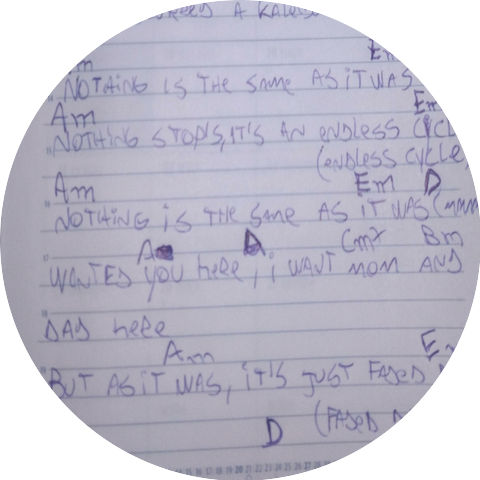 A
Em
NOTHING IS THE SAME AS IT WAS
Am Em
NOTHING STOPS, IT'S AN ENDLESS CYCL
(ENDLESS CYCLE,
Am Em D
NOTHING IS THE SAME AS IT WAS (
A A Cm7 Bm
WANTED YOU HERE, I WANT MOM AND
DAD HERE
Am E
BUT AS IT WAS, IT'S JUST FADED
D (FADED